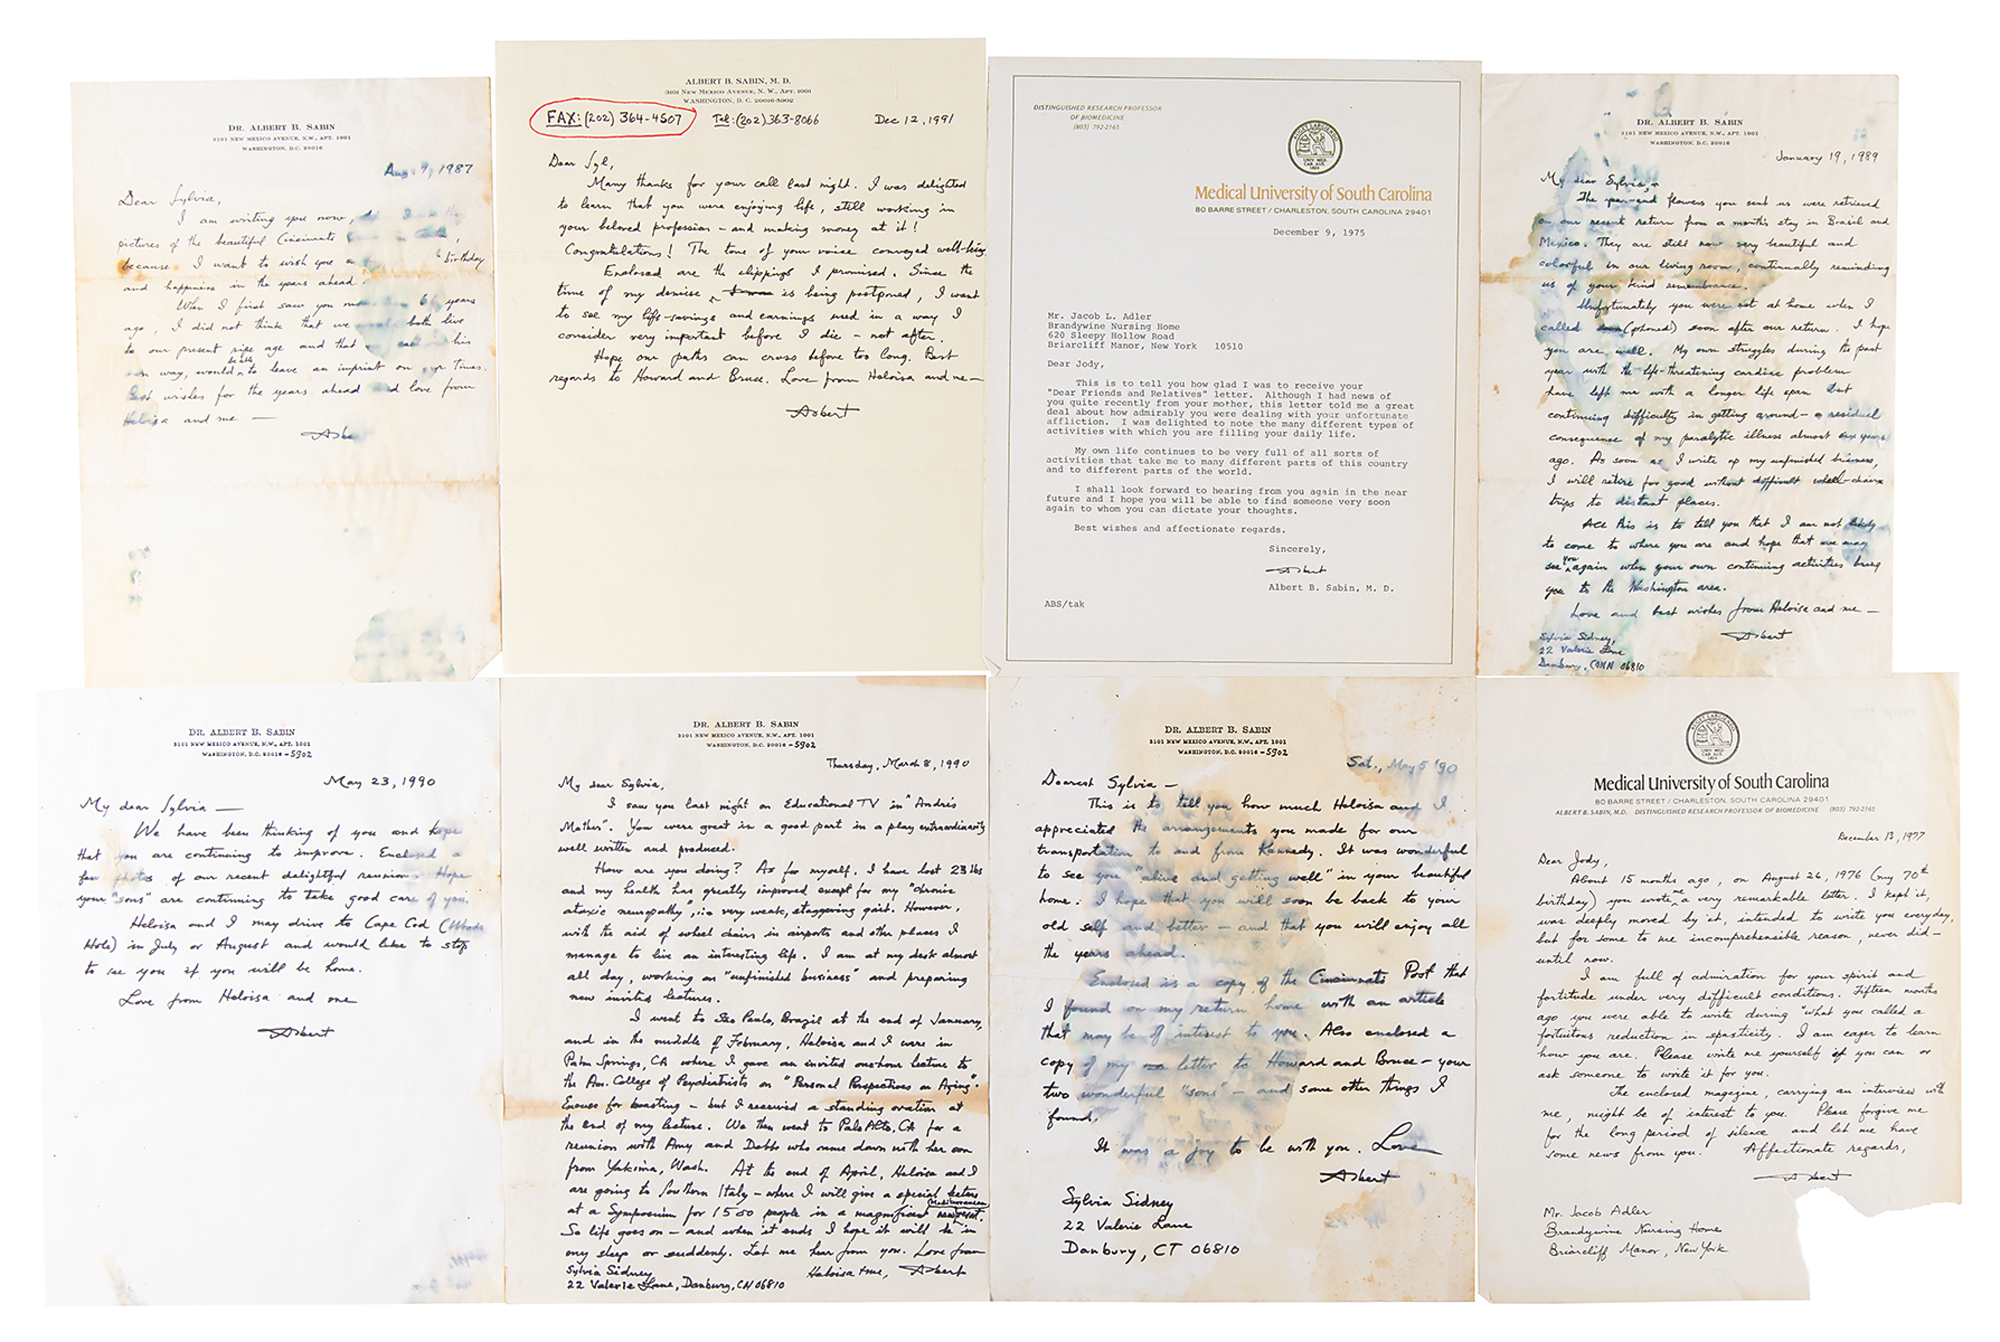 DR. ALBERT B. SABIN
3101 NEW MEXICO AVENUE, N.W., APT. 1001
WASHINGTON, D.C. 20016
Aug 9, 1987
Dear Sylvia,
I am writing you now,
pictures of the beautiful Cincinnati
because I want to wish you a birthday
and happiness in the years ahead.
When I first saw you more 60 years
ago, I did not think that we both live
to our present ripe age and that his
own way, would be able to leave an imprint on our times.
Best wishes for the years ahead and love from
Heloisa and me —
Albert
ALBERT B. SABIN, M. D.
3101 NEW MEXICO AVENUE, N. W., APT. 1001
WASHINGTON, D. C. 20016-5902
FAX: (202) 364-4507 Tel: (202) 363-8066 Dec 12, 1991
Dear Syl,
Many thanks for your call last night. I was delighted
to learn that you were enjoying life, still working in
your beloved profession — and making money at it!
Congratulations! The tone of your voice conveyed well-being.
Enclosed are the clippings I promised. Since the
time of my demise is being postponed, I want
to see my life-savings and earnings used in a way I
consider very important before I die — not after.
Hope our paths can cross before too long. Best
regards to Howard and Bruce. Love from Heloisa and me —
Albert
DISTINGUISHED RESEARCH PROFESSOR
OF BIOMEDICINE
(803) 792-2165
Medical University of South Carolina
80 BARRE STREET / CHARLESTON, SOUTH CAROLINA 29401
December 9, 1975
Mr. Jacob L. Adler
Brandywine Nursing Home
620 Sleepy Hollow Road
Briarcliff Manor, New York 10510
Dear Jody,
This is to tell you how glad I was to receive your
"Dear Friends and Relatives" letter. Although I had news of
you quite recently from your mother, this letter told me a great
deal about how admirably you were dealing with your unfortunate
affliction. I was delighted to note the many different types of
activities with which you are filling your daily life.
My own life continues to be very full of all sorts of
activities that take me to many different parts of this country
and to different parts of the world.
I shall look forward to hearing from you again in the near
future and I hope you will be able to find someone very soon
again to whom you can dictate your thoughts.
Best wishes and affectionate regards.
Sincerely,
Albert
Albert B. Sabin, M. D.
ABS/tak
DR. ALBERT B. SABIN
3101 NEW MEXICO AVENUE, N.W., APT. 1001
WASHINGTON, D.C. 20016
January 19, 1989
My dear Sylvia,
The flowers you sent us were retrieved
on our recent return from a month's stay in Brasil and
Mexico. They are still now very beautiful and
colorful in our living room, continually reminding
us of your kind remembrance.
Unfortunately you were not at home when I
called (phoned) soon after our return. I hope
you are well. My own struggles during the past
year with the life-threatening cardiac problem
have left me with a longer life span but
continuing difficulty in getting around — a residual
consequence of my paralytic illness almost six years
ago. As soon as I write up my unfinished business,
I will retire for good without difficult wheel-chair
trips to distant places.
All this is to tell you that I am not likely
to come to where you are and hope that we may
see you again when your own continuing activities bring
you to the Washington area.
Love and best wishes from Heloisa and me —
Albert
Sylvia Sidney,
22 Valerie Lane
Danbury, CONN 06810
DR. ALBERT B. SABIN
3101 NEW MEXICO AVENUE, N.W., APT. 1001
WASHINGTON, D.C. 20016 -5902
May 23, 1990
My dear Sylvia —
We have been thinking of you and hope
that you are continuing to improve. Enclosed a
few photos of our recent delightful reunion. Hope
your "sons" are continuing to take good care of you.
Heloisa and I may drive to Cape Cod (Woods
Hole) in July or August and would like to stop
to see you if you will be home.
Love from Heloisa and me
Albert
DR. ALBERT B. SABIN
3101 NEW MEXICO AVENUE, N.W., APT. 1001
WASHINGTON, D.C. 20016 -5902
Thursday, March 8, 1990
My dear Sylvia,
I saw you last night on Educational TV in "Andre's
Mother". You were great in a good part in a play extraordinarily
well written and produced.
How are you doing? As for myself, I have lost 23 lbs
and my health has greatly improved except for my "chronic
ataxic neuropathy", i.e. very weak, staggering gait. However,
with the aid of wheel chairs in airports and other places I
manage to live an interesting life. I am at my desk almost
all day, working on "unfinished business" and preparing
new invited lectures.
I went to São Paulo, Brazil at the end of January,
and in the middle of February, Heloisa and I were in
Palm Springs, CA where I gave an invited one-hour lecture to
the Am. College of Psychiatrists on "Personal Perspectives on Aging".
Excuse for boasting — but I received a standing ovation at
the end of my lecture. We then went to Palo Alto, CA for a
reunion with Amy and Debbe who came down with her son
from Yakima, Wash. At the end of April, Heloisa and I
are going to Southern Italy — where I will give a special lecture
at a Symposium for 1500 people in a magnificent Mediterranean resort.
So life goes on — and when it ends I hope it will be in
my sleep or suddenly. Let me hear from you. Love from
Heloisa & me, Albert
Sylvia Sidney
22 Valerie Lane, Danbury, CN 06810
DR. ALBERT B. SABIN
3101 NEW MEXICO AVENUE, N.W., APT. 1001
WASHINGTON, D.C. 20016 -5902
Sat., May 5 '90
Dearest Sylvia —
This is to tell you how much Heloisa and I
appreciated the arrangements you made for our
transportation to and from Kennedy. It was wonderful
to see you "alive and getting well" in your beautiful
home. I hope that you will soon be back to your
old self and better — and that you will enjoy all
the years ahead.
Enclosed is a copy of the Cincinnati Post that
I found on my return home with an article
that may be of interest to you. Also enclosed a
copy of my letter to Howard and Bruce — your
two wonderful "sons" — and some other things I
found.
It was a joy to be with you. Love
Albert
Sylvia Sidney
22 Valerie Lane
Danbury, CT 06810
Medical University of South Carolina
80 BARRE STREET / CHARLESTON, SOUTH CAROLINA 29401
ALBERT B. SABIN, M.D. DISTINGUISHED RESEARCH PROFESSOR OF BIOMEDICINE (803) 792-2165
December 13, 1977
Dear Jody,
About 15 months ago, on August 26, 1976 (my 70th
birthday) you wrote me a very remarkable letter. I kept it,
was deeply moved by it, intended to write you everyday,
but for some to me incomprehensible reason, never did —
until now.
I am full of admiration for your spirit and
fortitude under very difficult conditions. Fifteen months
ago you were able to write during "what you called a
fortuitous reduction in spasticity. I am eager to learn
how you are. Please write me yourself if you can or
ask someone to write it for you.
The enclosed magazine, carrying an interview with
me, might be of interest to you. Please forgive me
for the long period of silence and let me have
some news from you. Affectionate regards,
Albert
Mr. Jacob Adler
Brandywine Nursing Home
Briarcliff Manor, New York